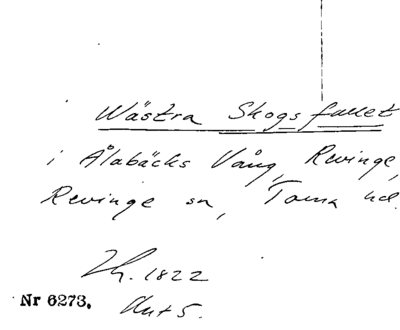 i Wästra Skogsfallet
i Ålabäcks Vång, Revinge,
Revinge sn, Torna hd.
Th. 1822
Nr 6273. Akt 5.